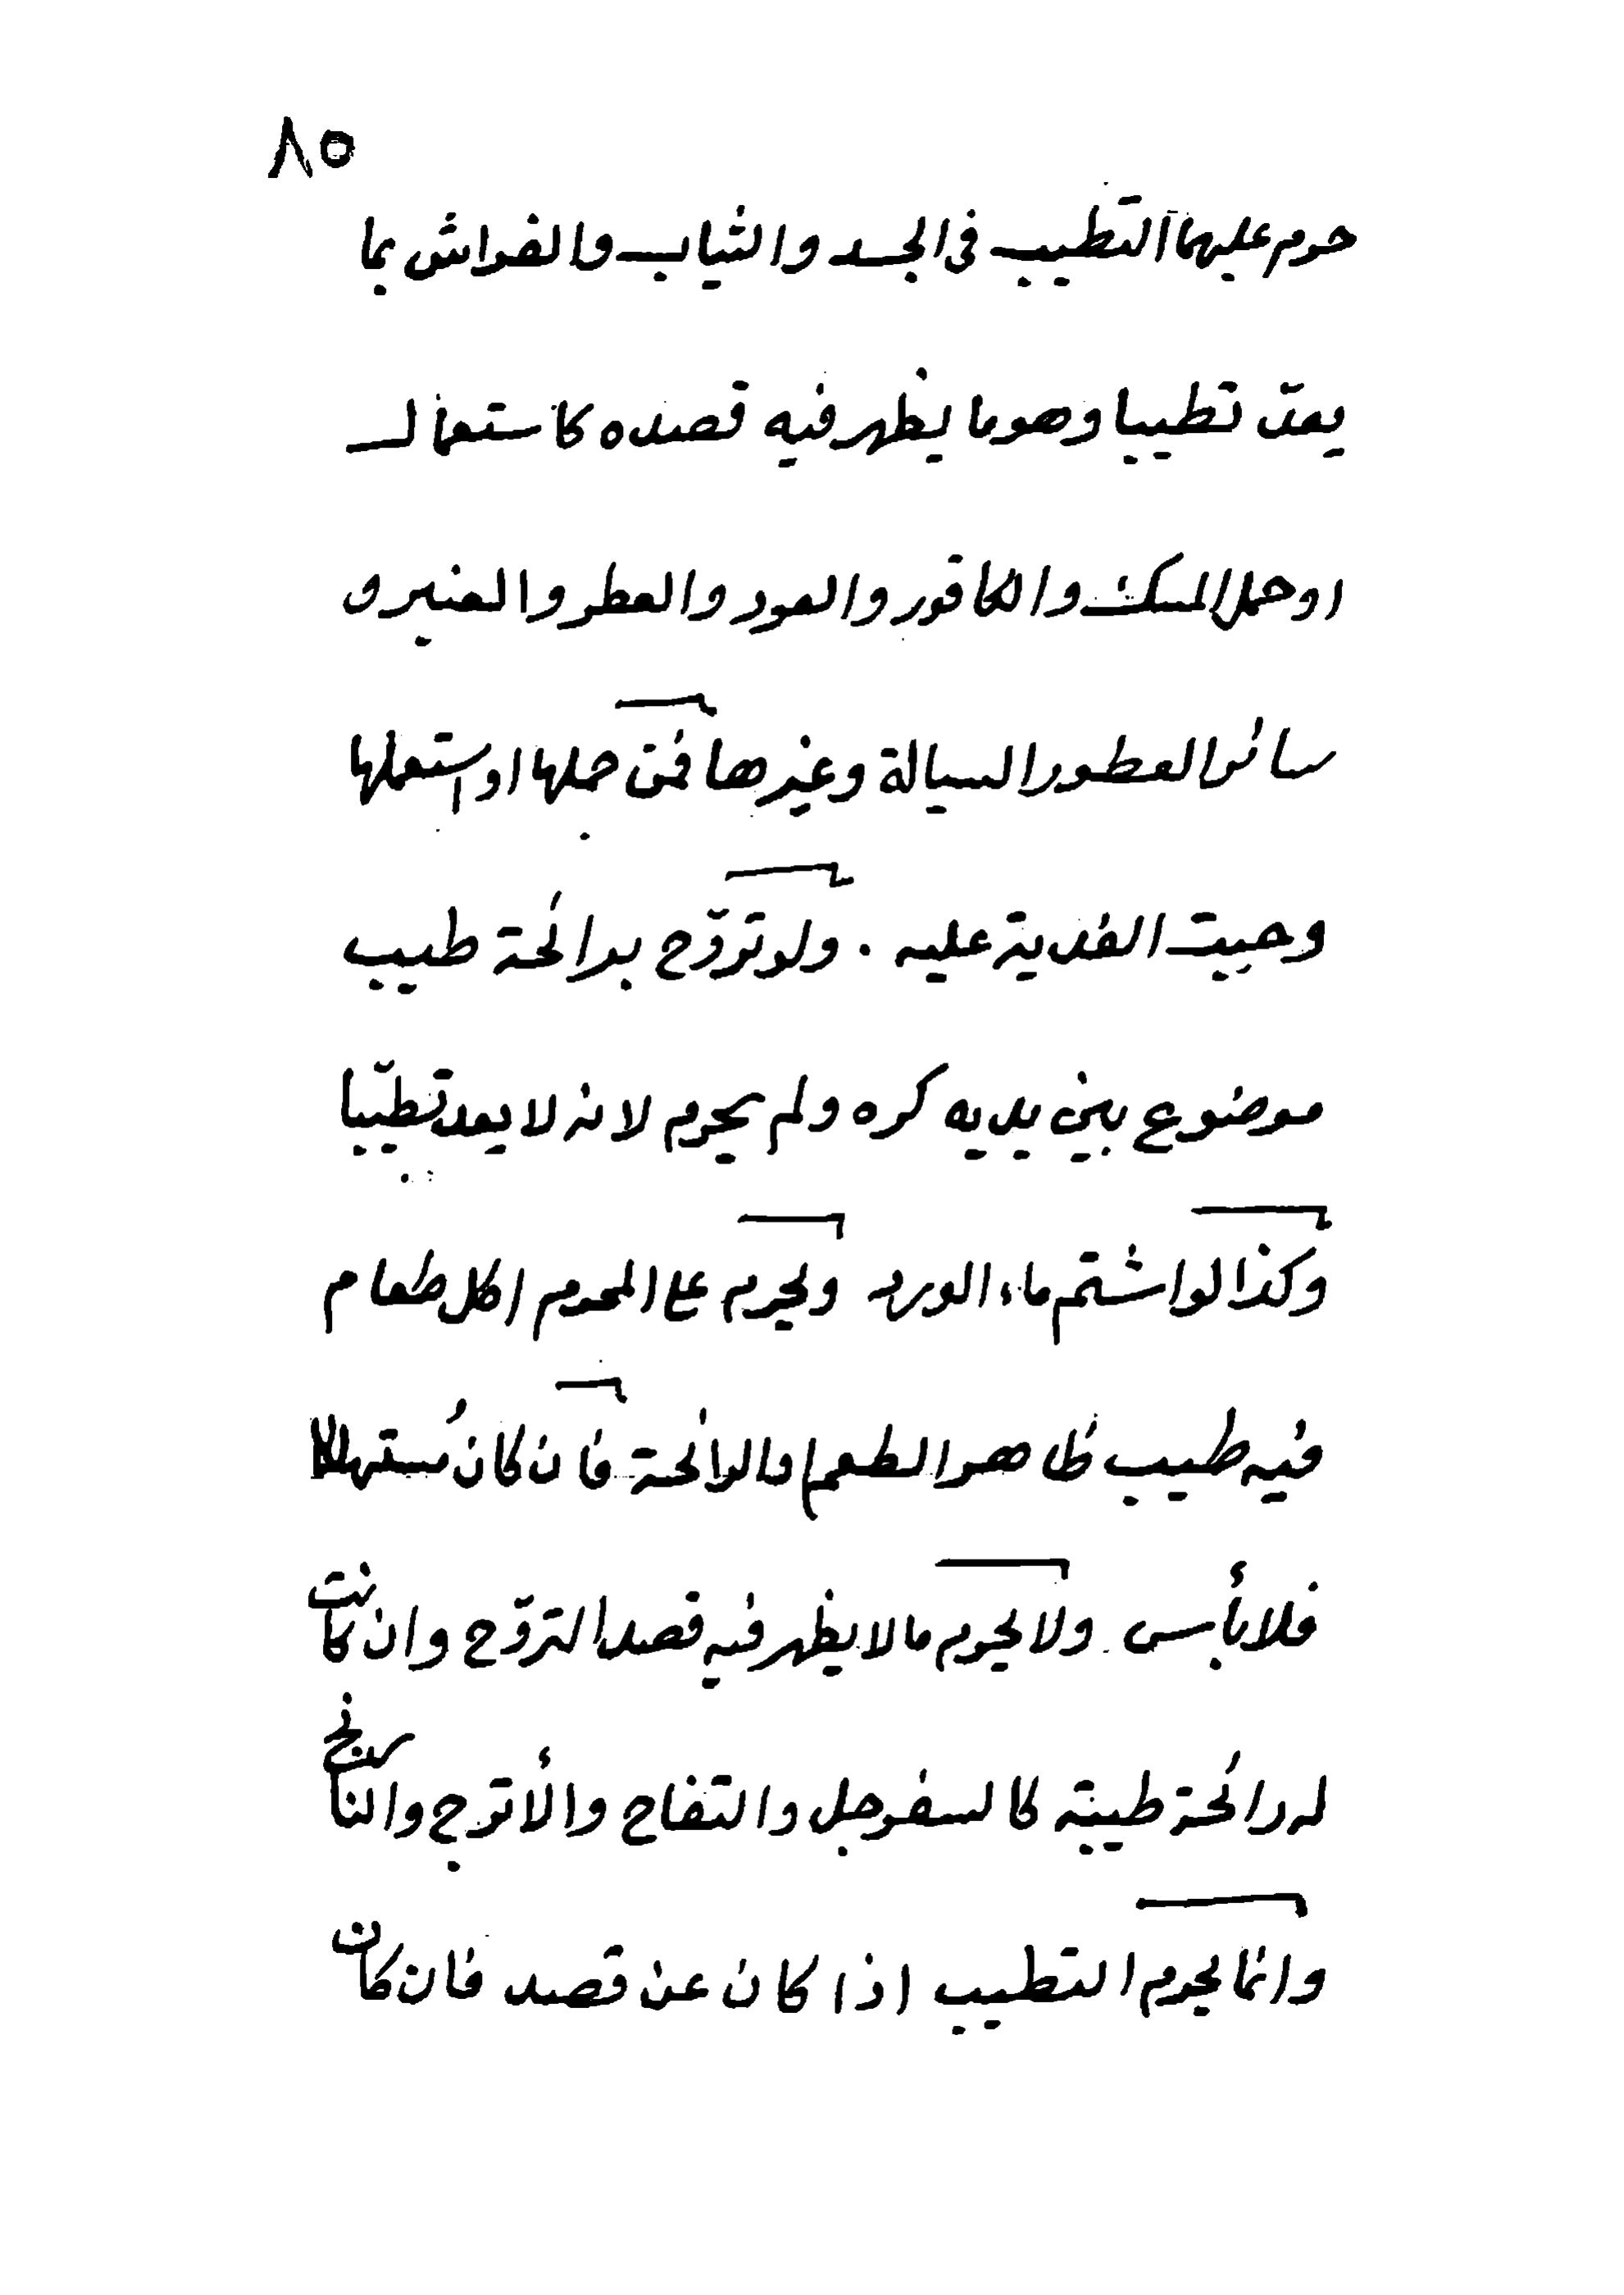 ٨٥
حرم عليهما التطيب في الجسد والثياب والفراش بما
يعدّ تطيبا وهو ما يظهر فيه قصده كاستعمال
او حمل المسك والكافور والعود والعطر والعنبر و
سائر العطور السيالة وغيرها فمن حملها او استعملها
وجبت الفدية عليه . ولو تروّح برائحة طيب
موضوع بين يديه كره ولم يحرم لانه لا يعد تطيّبا
وكذا لو اشتم ماء الورد ويحرم على المحرم اكل طعام
فيه طيب ظاهر الطعم او الرائحة فان كان مُستهلكا
فلا بأس . ولا يحرم ما لا يظهر فيه قصد التروّح وان كانت
له رائحة طيبة كالسفرجل والتفاح والأترج والنارنج
وانما يحرم التطيب اذا كان عن قصد فان كان